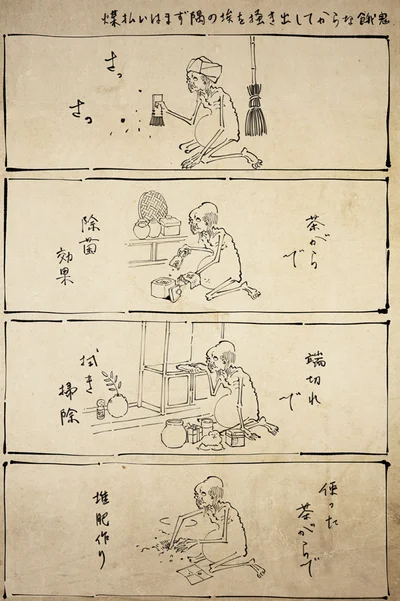 煤払いはまず隅の埃を掻き出してからな餓鬼
さっ
さっ
茶がら
で
除菌
効果
端切れ
で
拭き
掃除
使った
茶がらで
堆肥作り